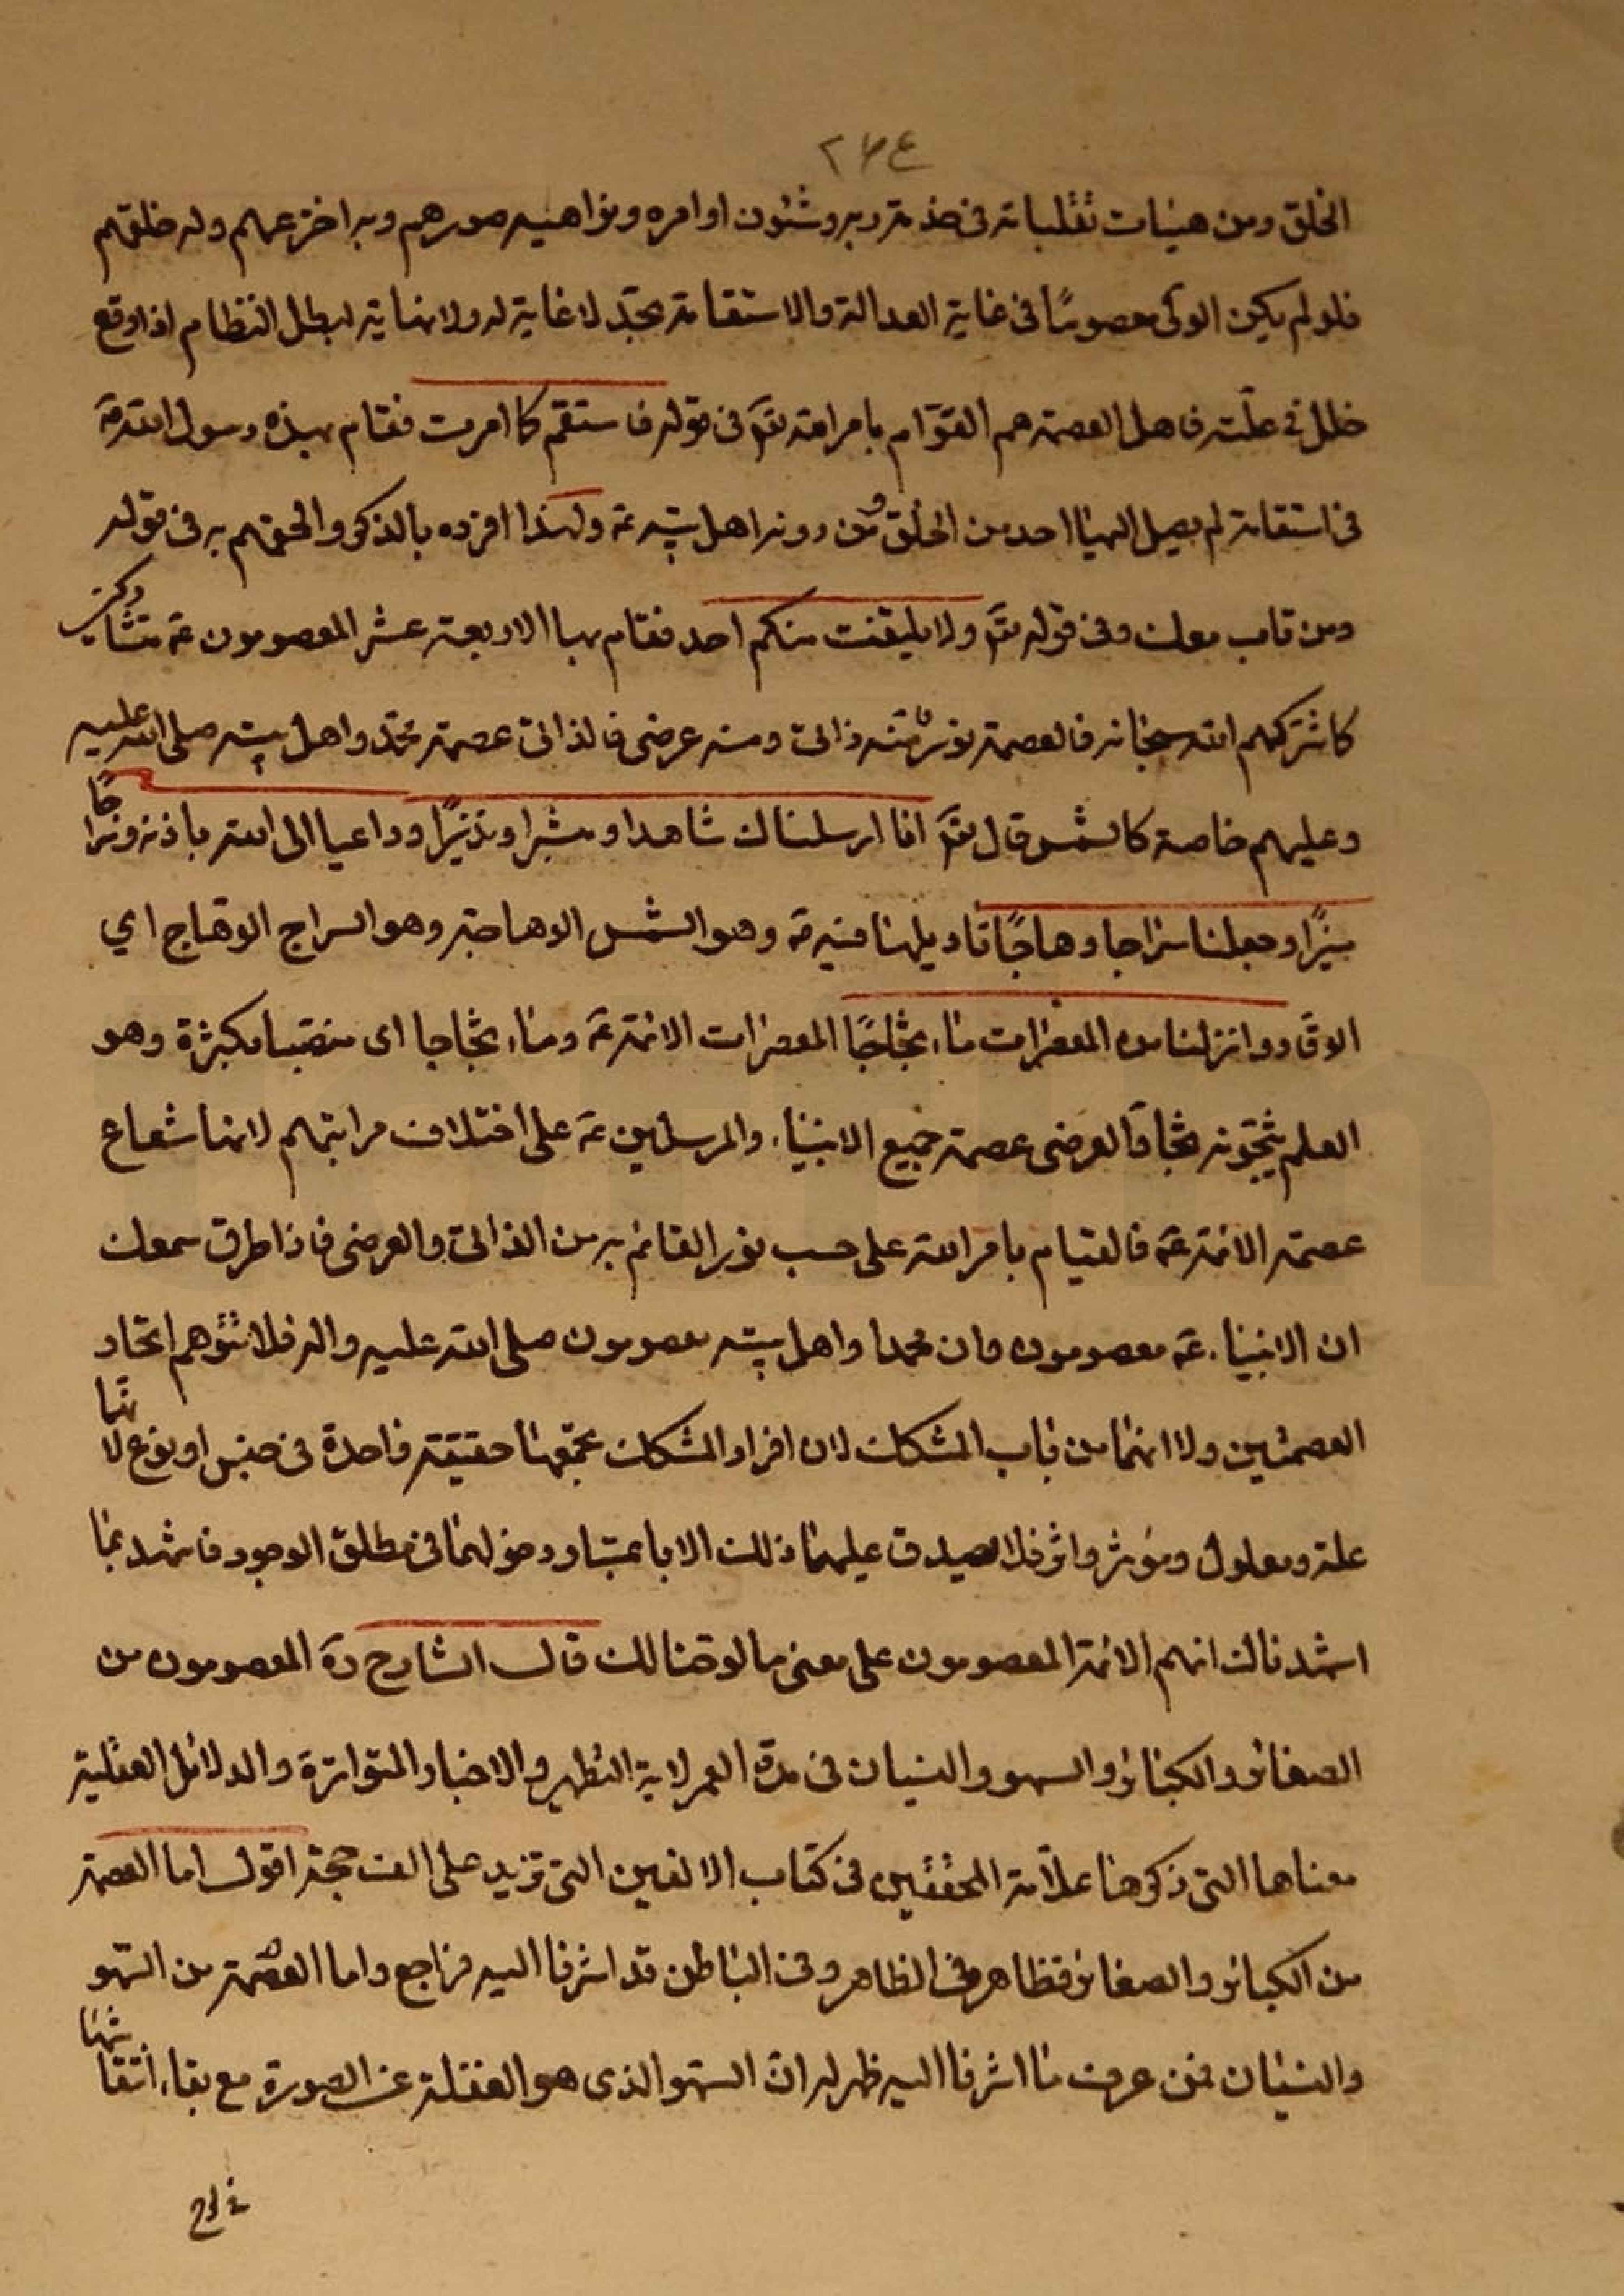 ٢٦٤
الخلق ومن هيئات تقلباته فى خدمة ربه وشئون اوامره ونواهيه صورهم وبه اخترعهم وله خلقهم
فلو لم يكن الولى معصومًا فى غاية العدالة والاستقامة بحدّ لا غاية له ولا نهاية لبطل النظام اذا وقع
خلل فى علّته فاهل العصمة هم القوّام بامر الله تعٓ فى قوله فاستقم كما امرت فقام بهذه رسول الله صٓ
فى استقامة لم يصل اليها احد من الخلق من دونه اهل بيته عٓ ولهذا افرده بالذكر والحقهم به فى قوله
ومن تاب معك وفى قوله تعٓ ولا يلتفت منكم احد فقام بها الاربعة عشر المعصومون عٓ متشاركين
كما شركهم الله سبحانه فالعصمة نور منه ذاتى ومنه عرضى فالذاتى عصمة محمّد واهل بيته صلى الله عليه
وعليهم خاصة كالشمس قال تعٓ انا ارسلناك شاهدا ومبشرا ونذيرًا وداعيا الى الله باذنه وسراجًا
منيرًا وجعلنا سراجا وهاجًا تاويلها فيه صٓ وهو الشمس الوهاجة وهو السراج الوهاج اي
الوقّاد وانزلنا من المعصرات ماء ثجّاجًا المعصرات الائمة عٓ وماء ثجّاجا اى منصبّا بكثرة وهو
العلم يثجّونه ثجّا والعرضى عصمة جميع الانبياء والمرسلين عٓ على اختلاف مراتبهم لانها شعاع
عصمة الائمة عٓ فالقيام بامر الله على حسب نور القائم به من الذاتى والعرضى فاذا طرق سمعك
ان الانبياء عٓ معصومون وان محمدا واهل بيته معصومون صلى الله عليه واله فلا تتوهم اتحاد
العصمتين ولا انهما من باب المشكك لان افراد المشكك تجمعها حقيقة واحدة فى جنس او نوع لانهما
علة ومعلول ومؤثر واثر فلا يصدق عليهما ذلك الا باعتبار دخولهما فى مطلق الوجود فاشهد بما
اشهدناك انهم الائمة المعصومون على معنى ما لوحنا لك قال الشارح رهٓ المعصومون من
الصغائر والكبائر والسهو والنسيان فى مدة العمر لاية التطهير والاخبار المتواترة والدلائل العقلية
معناها التى ذكرها علّامة المحققين فى كتاب الالفين التى تزيد على الف حجة اقول اما العصمة
من الكبائر والصغائر فظاهر فى الظاهر وفى الباطن قد اشرنا اليه فراجع واما العصمة من السّهو
والنسيان فمن عرف ما اشرنا اليه ظهر له انّ السّهو الذى هو الغفلة عن الصورة مع بقاء انتقاشها